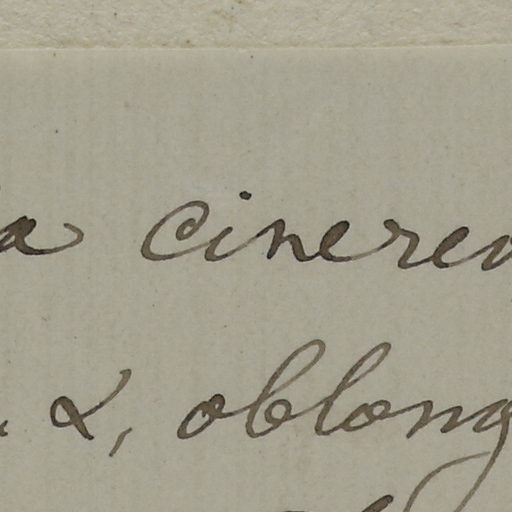 a cinerea
α, oblong